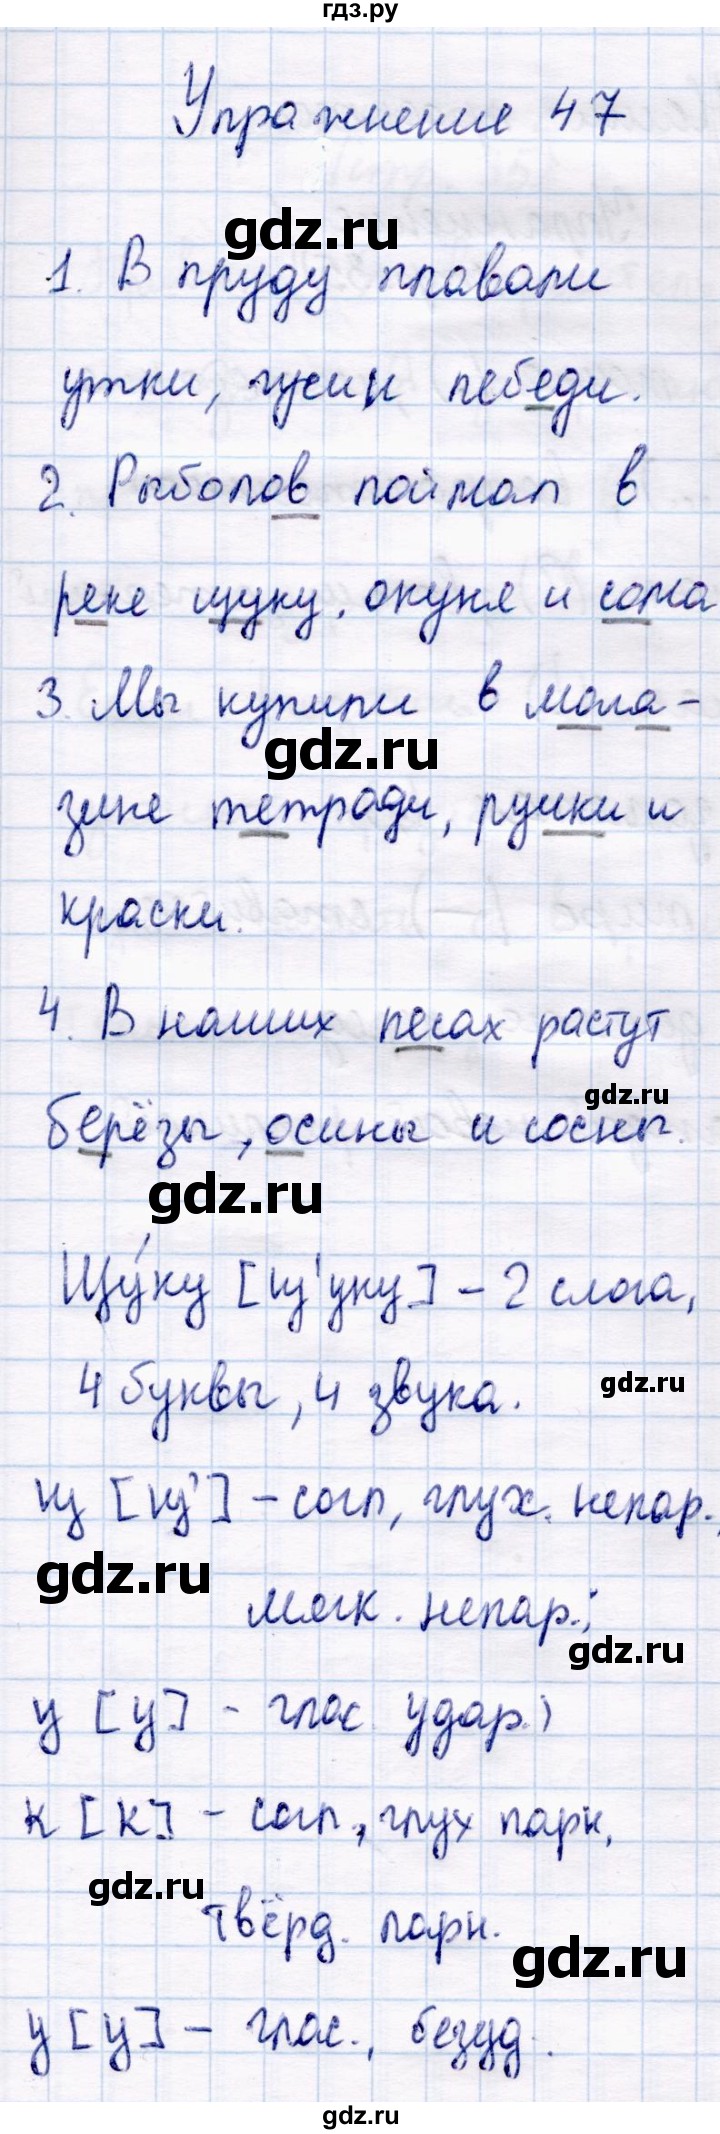 гдз.ру
Упражнение 47
gdz.ru
1. В пруду плавали
утки, гуси и лебеди.
2. Рыболов поймал в
реке щуку, окуня и сома
3. Мы купили в мага-
gdz.ru
зине тетради, ручки и
краски.
4. В наших лесах растут
gdz.ru
берёзы, осины и сосны.
gdz.ru
Щу́ку [щ'уку] - 2 слога,
4 буквы, 4 звука.
gdz.ru
щ [щ'] - согл, глух. непар.,
gdz.ru
мягк. непар.;
gdz.ru
у [у] - глас. удар.;
к [к] - согл., глух парн,
gdz.ru
твёрд. парн.
gdz.ru
у [у] - глас., безуд.
gdz.ru